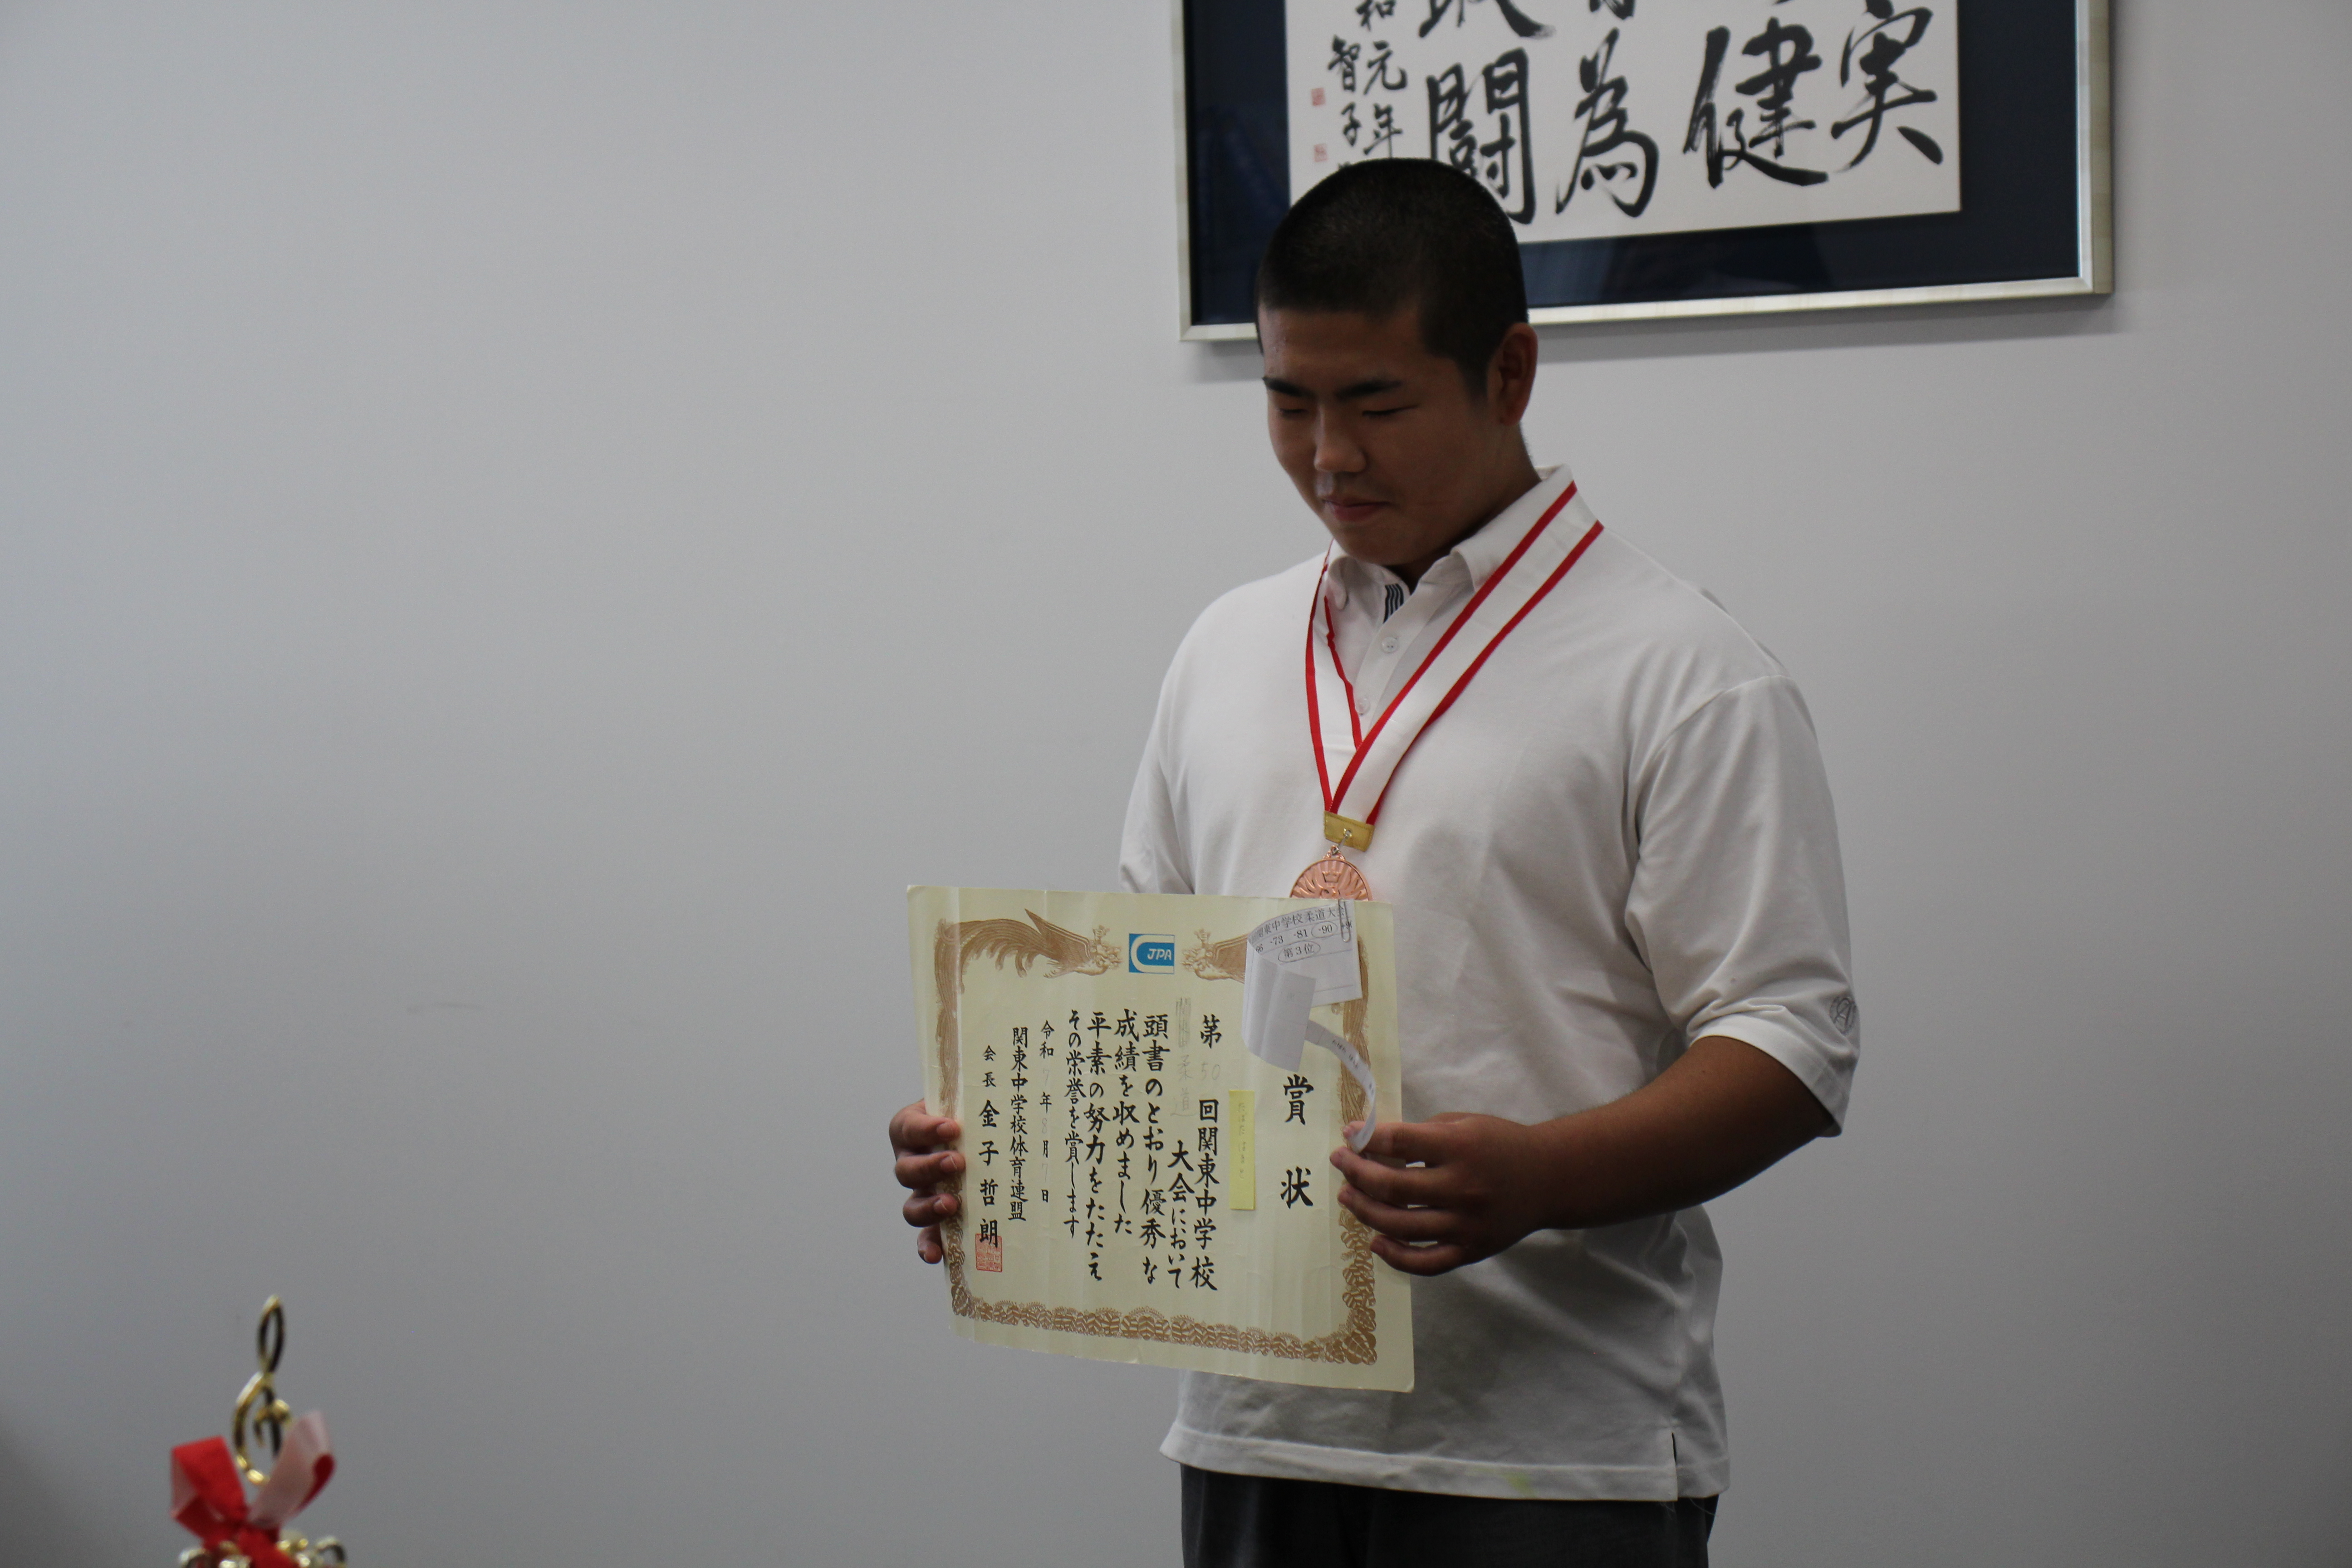 実
健
為
闘
和元年
智子
JPA
関東中学校柔道大会
-73 -81 -90
第3位
賞状
第50回関東中学校
柔道
大会において
頭書のとおり優秀な
成績を収めました
平素の努力をたたえ
その栄誉を賞します
令和7年8月7日
関東中学校体育連盟
会長 金子哲朗